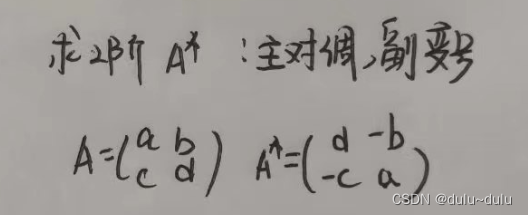 求2阶 A* :主对调,副变号
A=(a b
c d) A*=(d -b
-c a)
CSDN @dulu~dulu